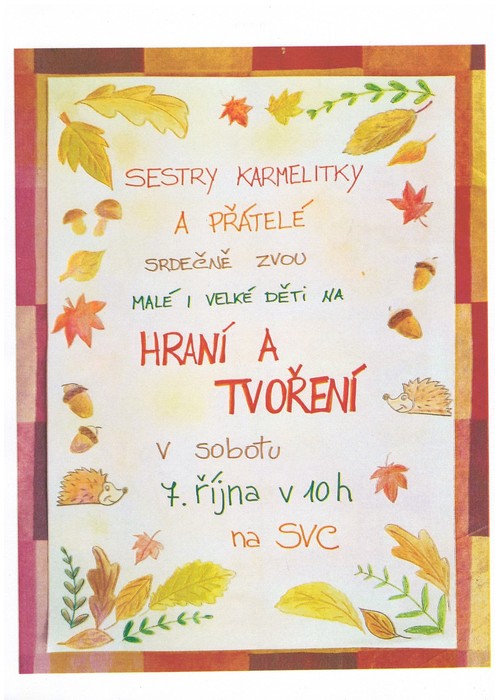 SESTRY KARMELITKY
A PŘÁTELÉ
SRDEČNĚ ZVOU
MALÉ I VELKÉ DĚTI NA
HRANÍ A
TVOŘENÍ
v sobotu
7. října v 10h
na SVC